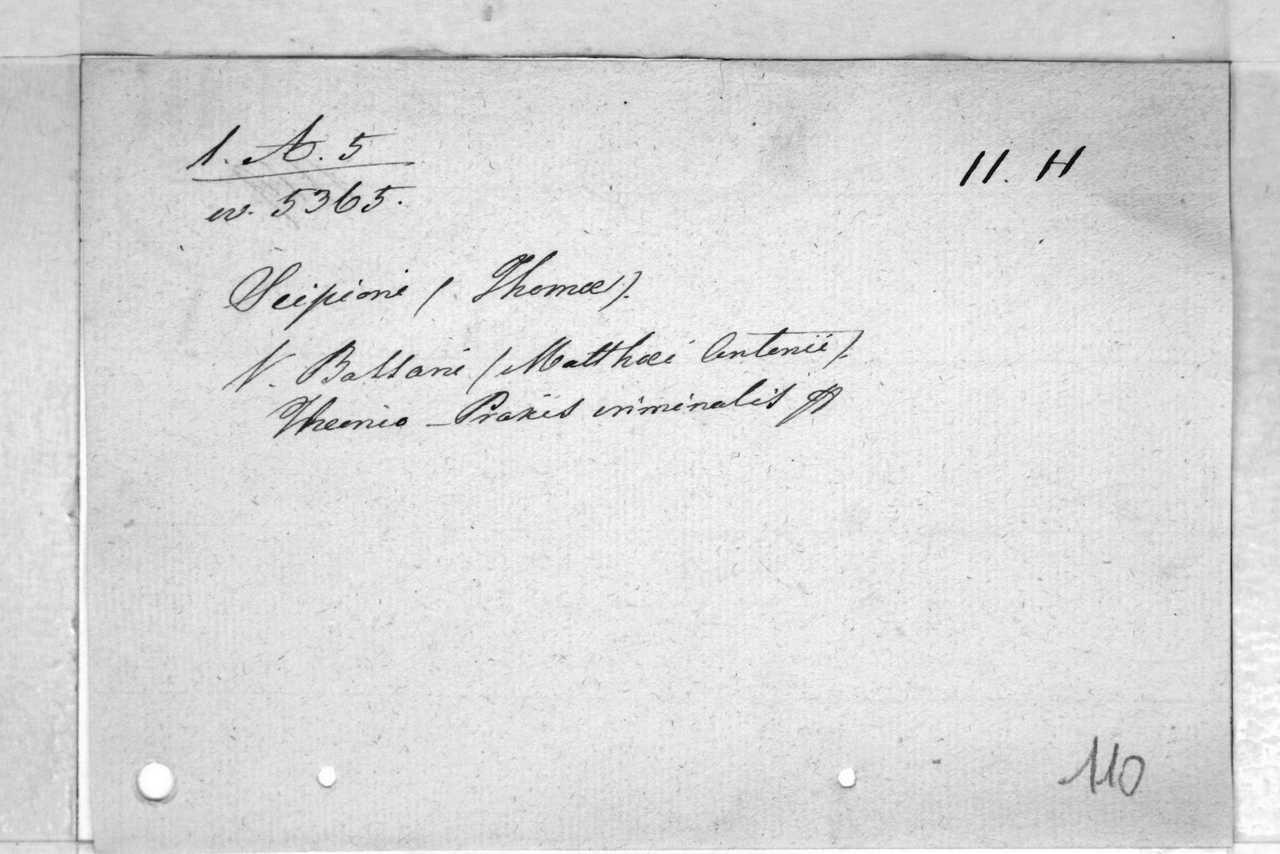 1. A. 5
11. H
ev. 5365.
Scipioni (Thomæ).
V. Bassani (Matthæi Antonii).
Theorico-Praxis criminalis
110